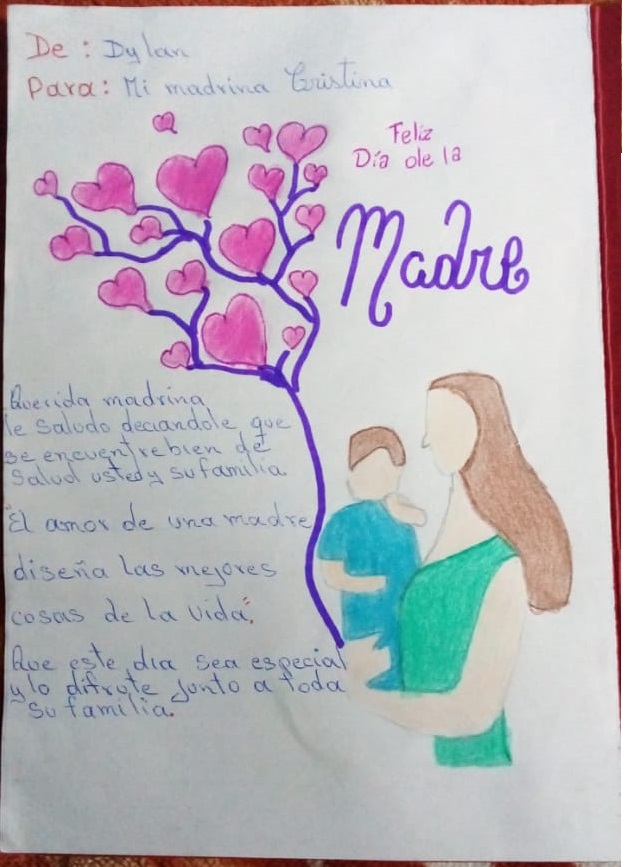 De: Dylan
Para: Mi madrina Cristina
Feliz
Día de la
Madre
Querida madrina
le saludo deciandole que
se encuentre bien de
salud usted y su familia
"El amor de una madre
diseña las mejores
cosas de la vida".
Que este día sea especial
y lo difrute junto a toda
su familia.